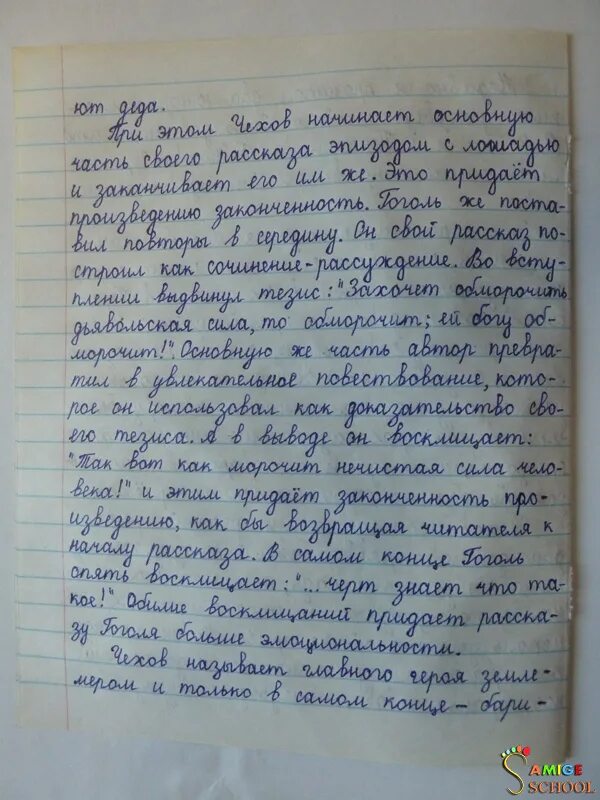 ют деда.
При этом Чехов начинает основную
часть своего рассказа эпизодом с лошадью
и заканчивает его им же. Это придаёт
произведению законченность. Гоголь же поста-
вил повторы в середину. Он свой рассказ по-
строил как сочинение-рассуждение. Во всту-
плении выдвинул тезис: "Захочет обморочить
дьявольская сила, то обморочит; ей богу об-
морочит!". Основную же часть автор превра-
тил в увлекательное повествование, кото-
рое он использовал как доказательство сво-
его тезиса. А в выводе он восклицает:
"Так вот как морочит нечистая сила чело-
века!" и этим придаёт законченность про-
изведению, как бы возвращая читателя к
началу рассказа. В самом конце Гоголь
опять восклицает: "... черт знает что та-
кое!" Обилие восклицаний придает расска-
зу Гоголя больше эмоциональности.
Чехов называет главного героя земле-
мером и только в самом конце - бари-
SAMIGE
SCHOOL